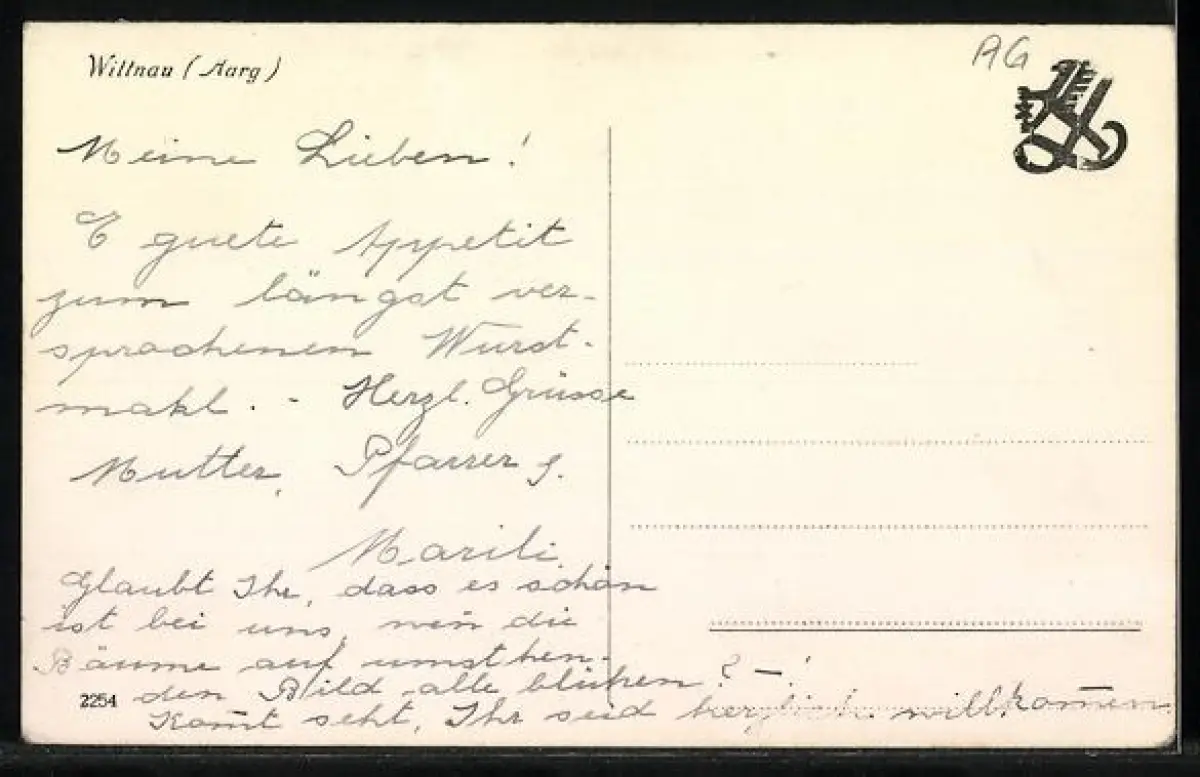 Wittnau (Aarg)
AG
Meine Lieben!
E guete Appetit
zum längst ver-
sprochenen Wurst-
mahl. - Herzl. Grüsse
Mutter, Pfarrer J.
Marili.
Glaubt Ihr, dass es schön
ist bei uns, wen̄ die
Bäume auf umsthen-
den Bild alle blühen? – !
2254
Kom̄t seht, Ihr seid herzlich willkom̄en.